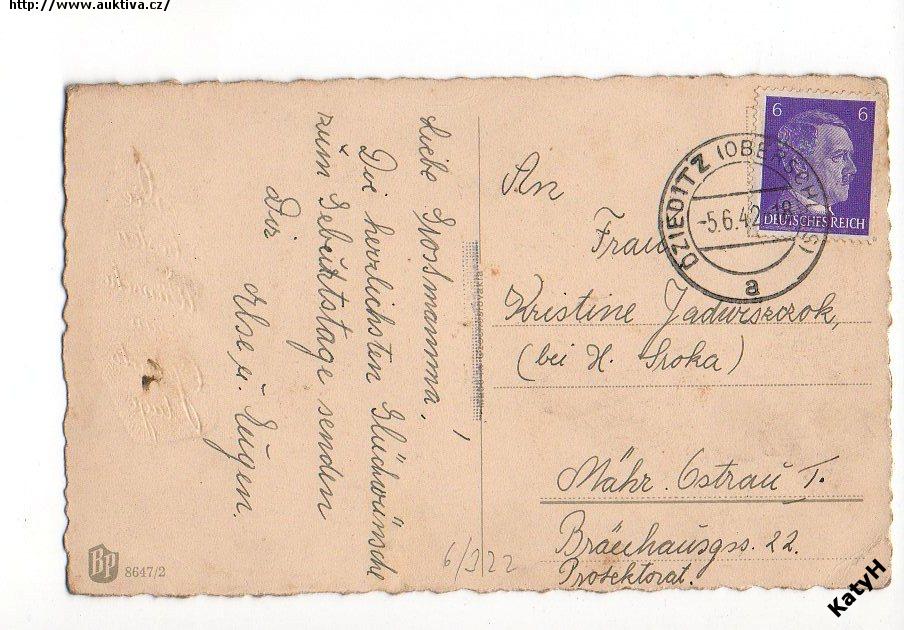 http://www.auktiva.cz/
Liebe Grossmamma,
Die herzlichsten Glückwünsche
zum Gebuŕtstage senden
Dir
Ilse u. Eugen.
6 6
DEUTSCHES REICH
DZIEDITZ (OBERSCHLES)
-5.6.42
a
An
Frau
Kristine Jadwiszczok,
(bei H. Sroka)
Mähr. Ostrau I.
Bräuhausgss. 22.
Protektorat.
6/322
Bp
8647/2
KatyH